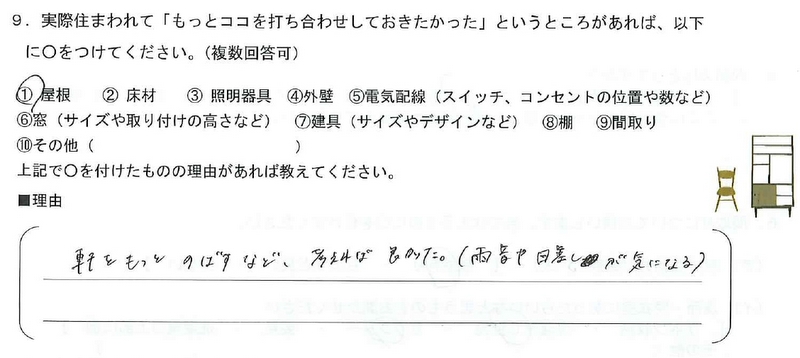 9．実際住まわれて「もっとココを打ち合わせしておきたかった」というところがあれば、以下
に〇をつけてください。（複数回答可）
① 屋根　② 床材　③ 照明器具　④外壁　⑤電気配線（スイッチ、コンセントの位置や数など）
⑥窓（サイズや取り付けの高さなど）　⑦建具（サイズやデザインなど）　⑧棚　⑨間取り
⑩その他（　　　　　　　　　　　　　　）
上記で〇を付けたものの理由があれば教えてください。
■理由
軒をもっと のばすなど、考えれば 良かった。（雨音や日差しが気になる）